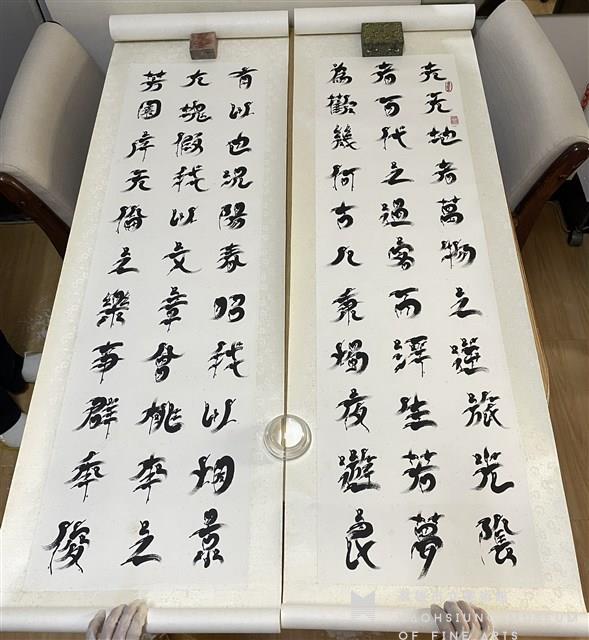 夫天地者萬物之逆旅光陰
者百代之過客而浮生若夢
為歡幾何古人秉燭夜遊良
有以也況陽春召我以烟景
大塊假我以文章會桃李之
芳園序天倫之樂事群季俊
高雄市立美術館
KAOHSIUNG MUSEUM
OF FINE ARTS